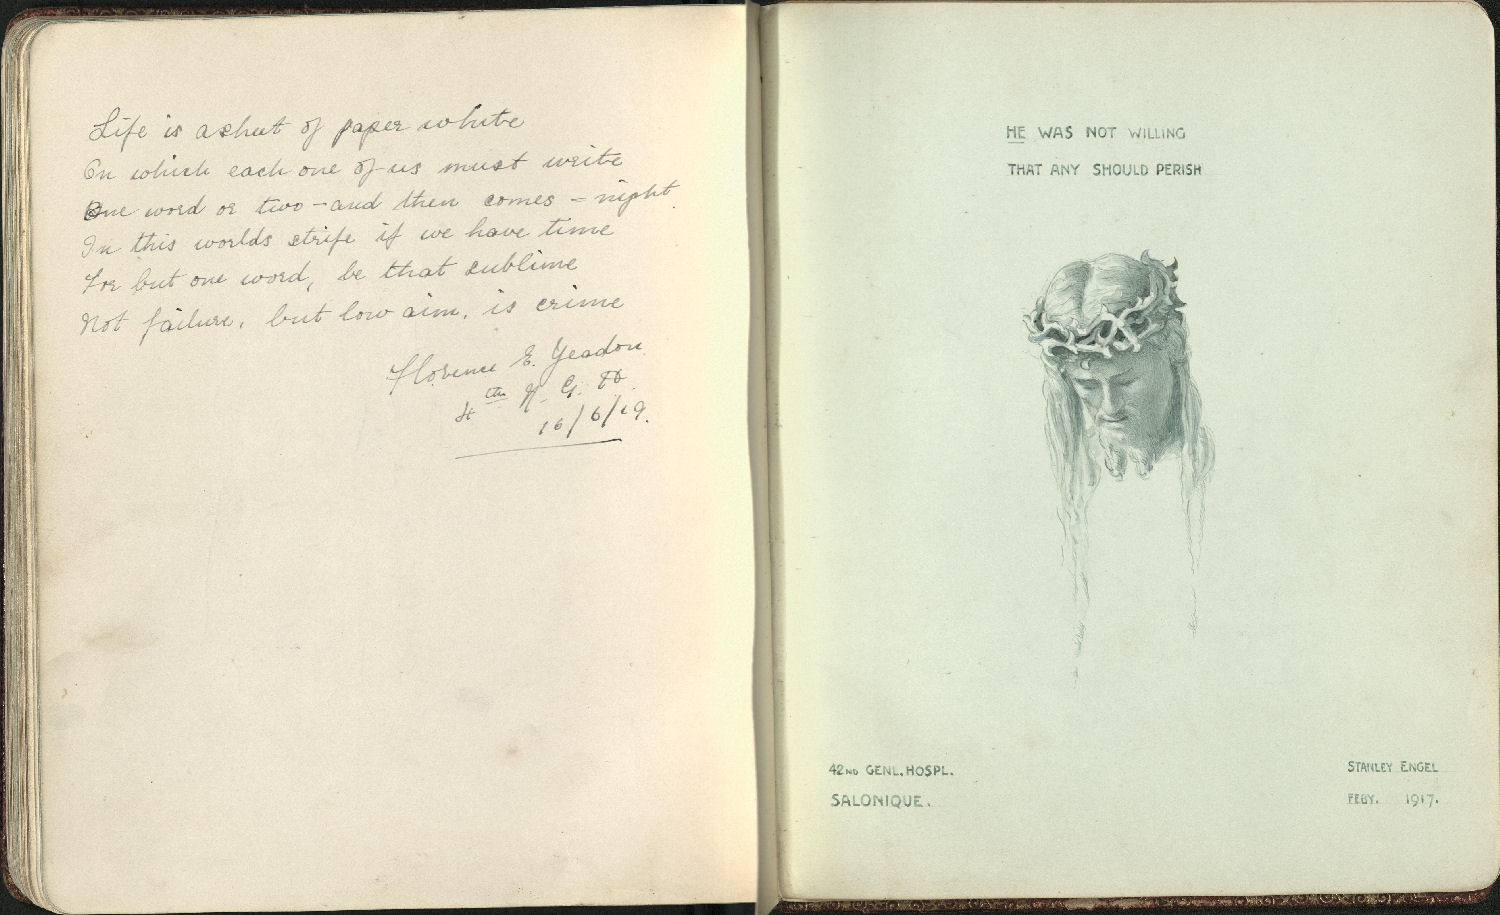 Life is a sheet of paper white
On which each one of us must write
One word or two - and then comes - night.
In this worlds strife if we have time
For but one word, be that sublime
Not failure, but low aim, is crime
Florence E. Yeadon
4th N. G. H.
16/6/19.
HE WAS NOT WILLING
THAT ANY SHOULD PERISH
42ND GENL. HOSPL.
SALONIQUE.
STANLEY ENGEL
FEBY. 1917.